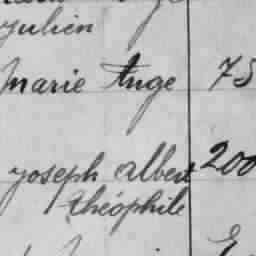 Julien
Marie Ange 75
Joseph Albert 200
Théophile